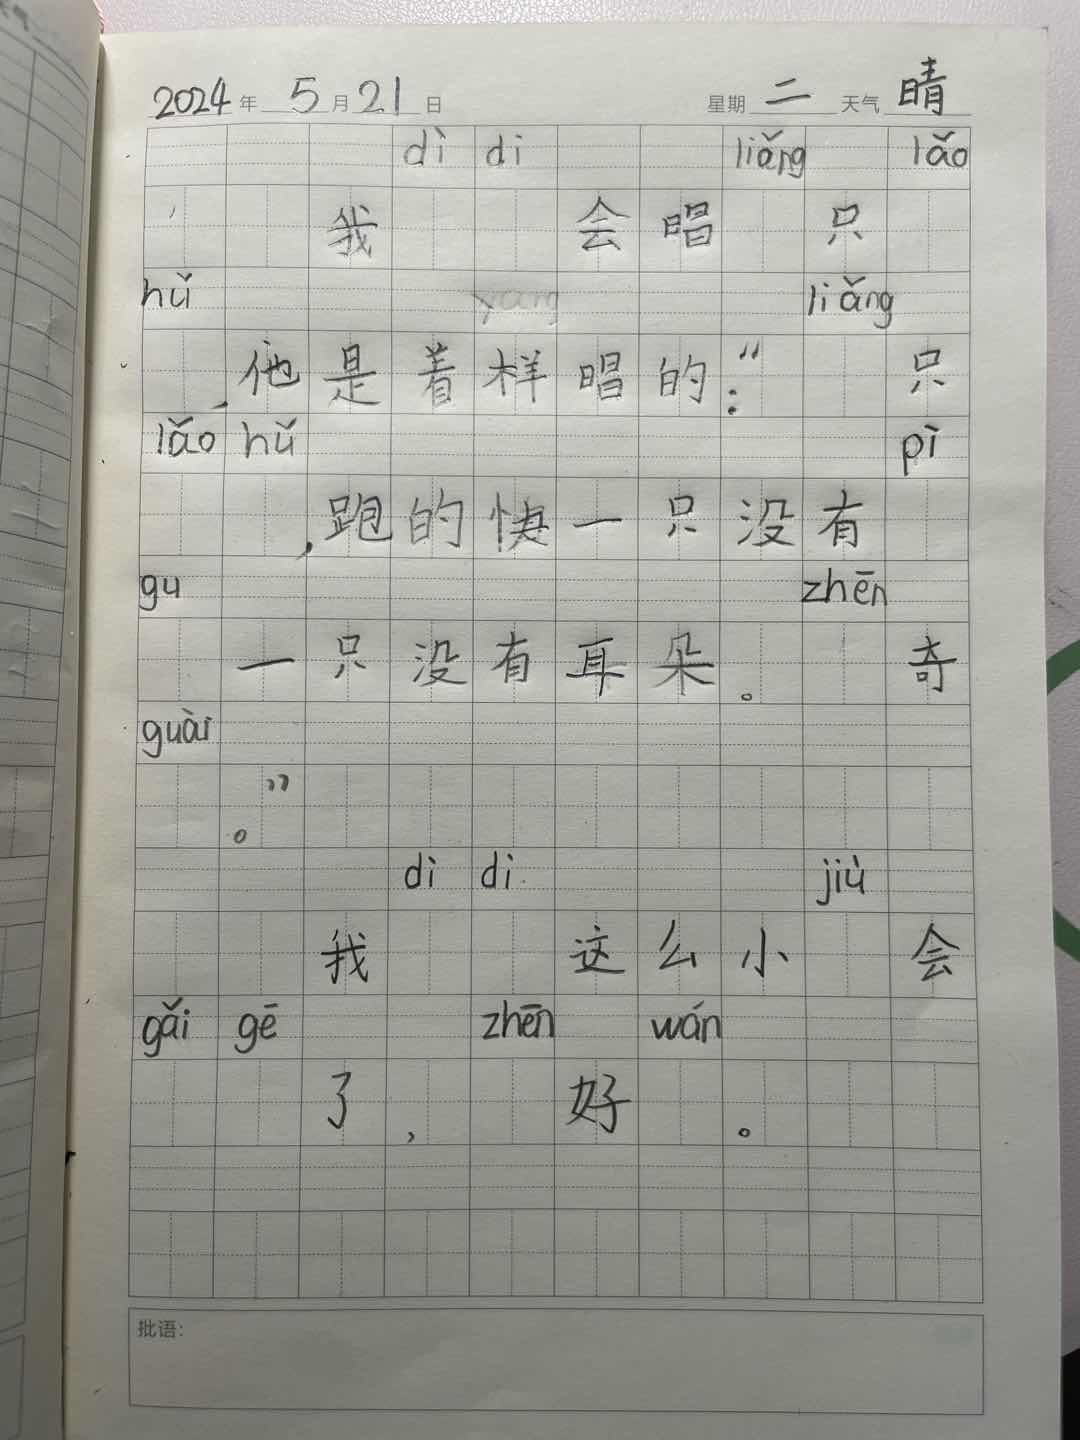 2024年 5月21日 星期 二 天气 晴
dì di liǎng lǎo
我 会唱 只
hǔ yang liǎng
,他是着样唱的:“ 只
lǎo hǔ pì
,跑的快一只没有
gu zhēn
一只没有耳朵。 奇
guài
。”
dì di jiù
我 这么小 会
gǎi gē zhēn wán
了, 好 。
批语: